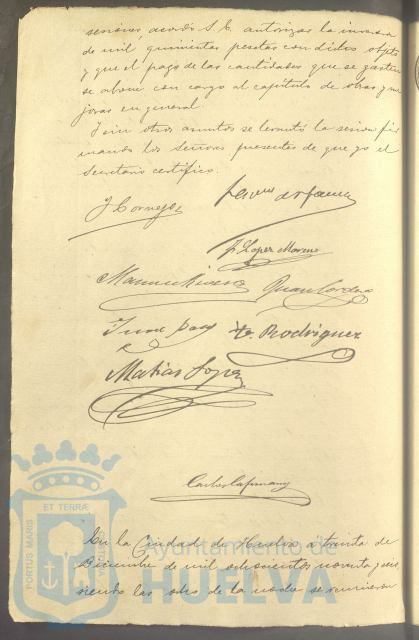 sesiones, acordó S. E. autorizar la inversión
de mil quinientas pesetas con dicho objeto
y que el pago de las cantidades que se gasten
se abone con cargo al capítulo de obras y me
joras en general.
Y sin otros asuntos se levantó la sesión fir
mando los Señores presentes de que yo el
Secretario certifico.
J Cornejo
F. Lopez Moreno
Manuel Juan Cordero
Juan E. Rodriguez
Matias Lopez
Carlos
En la Ciudad de Huelva a treinta de
Diciembre de mil ochocientos noventa y seis
siendo las ocho de la noche se reunieron
PORTUS MARIS ET TERRÆ CUSTODIA
Ayuntamiento de
HUELVA